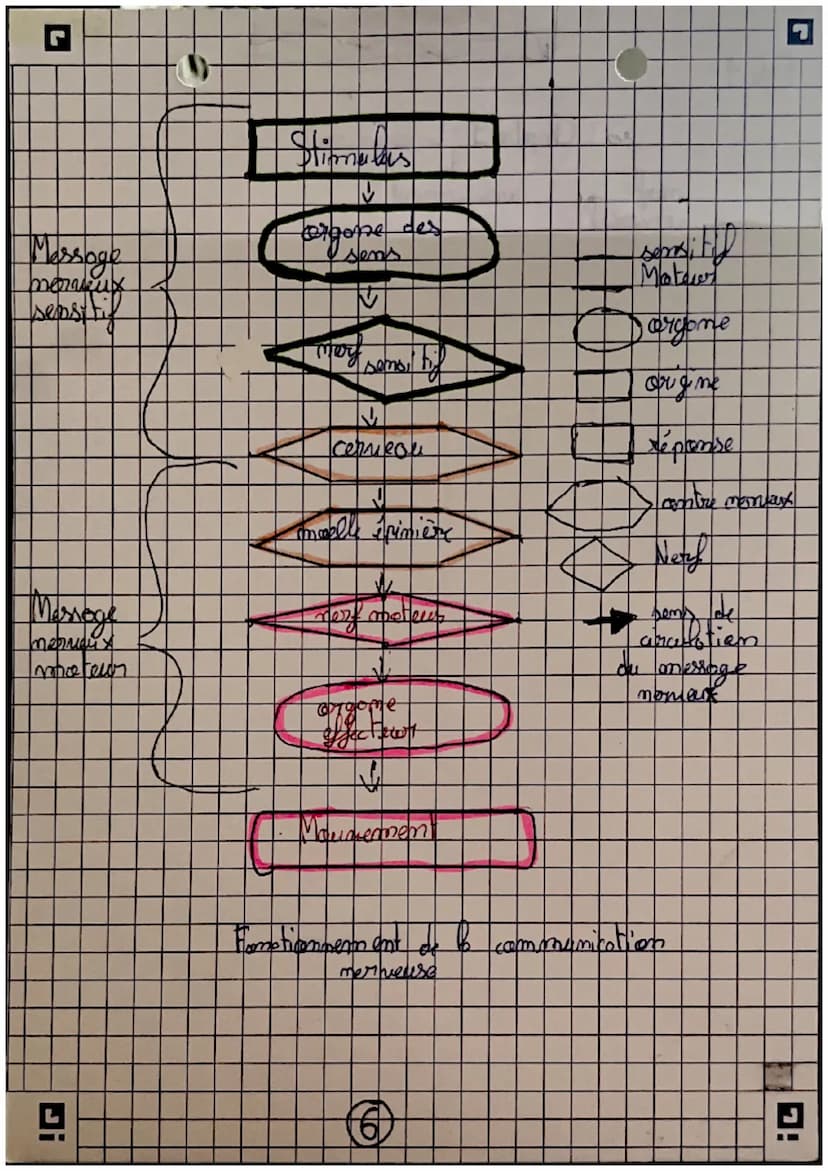 Stimulus
organe des
sens
nerf
sensitif
cerveau
moelle épinière
nerf moteur
organe
effecteur
Mouvement
Message
nerveux
sensitif
Message
nerveux
moteur
sensitif
Moteur
organe
origine
réponse
centre nerveux
Nerf
sens de
circulation
du message
nerveux
Fonctionnement de la communication
nerveuse
6